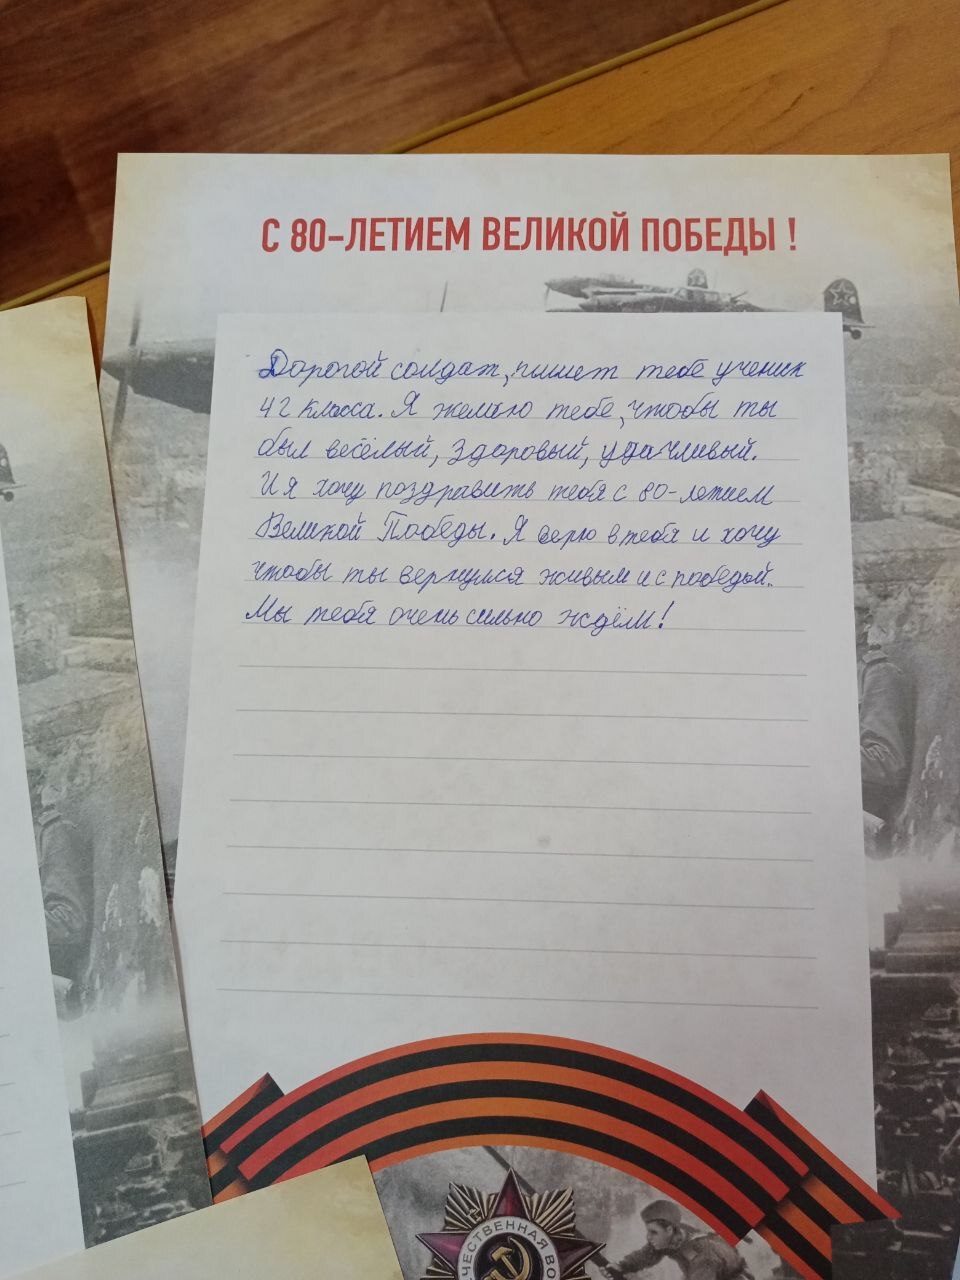 С 80-ЛЕТИЕМ ВЕЛИКОЙ ПОБЕДЫ !
Дорогой солдат, пишет тебе ученик
4 2 класса. Я желаю тебе, чтобы ты
был весёлый, здоровый, удачливый.
И я хочу поздравить тебя с 80-летием
Великой Победы. Я верю в тебя и хочу
чтобы ты вернулся живым и с победой.
Мы тебя очень сильно ждём!
ЧЕСТВЕННАЯ ВО